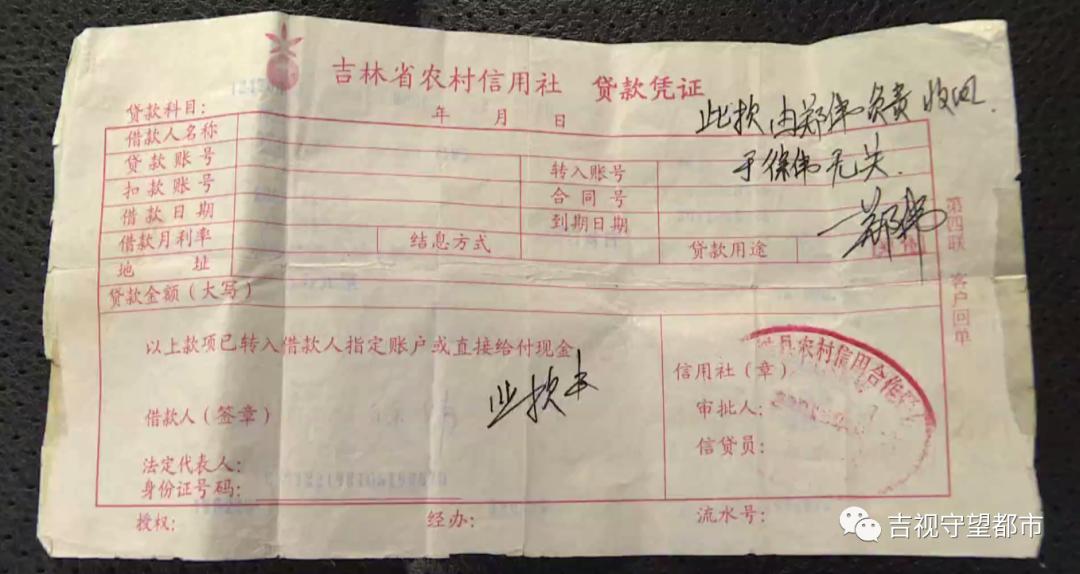 吉林省农村信用社 贷款凭证
贷款科目: 年 月 日
此款由郑伟负责收回.
于徐伟无关.
郑伟
借款人名称
贷款账号 转入账号
扣款账号 合同号
借款日期 到期日期
借款月利率 结息方式 贷款用途
地 址
贷款金额(大写)
第四联 客户回单
以上款项已转入借款人指定账户或直接给付现金
此款
借款人(签章)
信用社(章)
农村信用合作
审批人:
信贷员:
法定代表人:
身份证号码:
授权: 经办: 流水号:
吉视守望都市